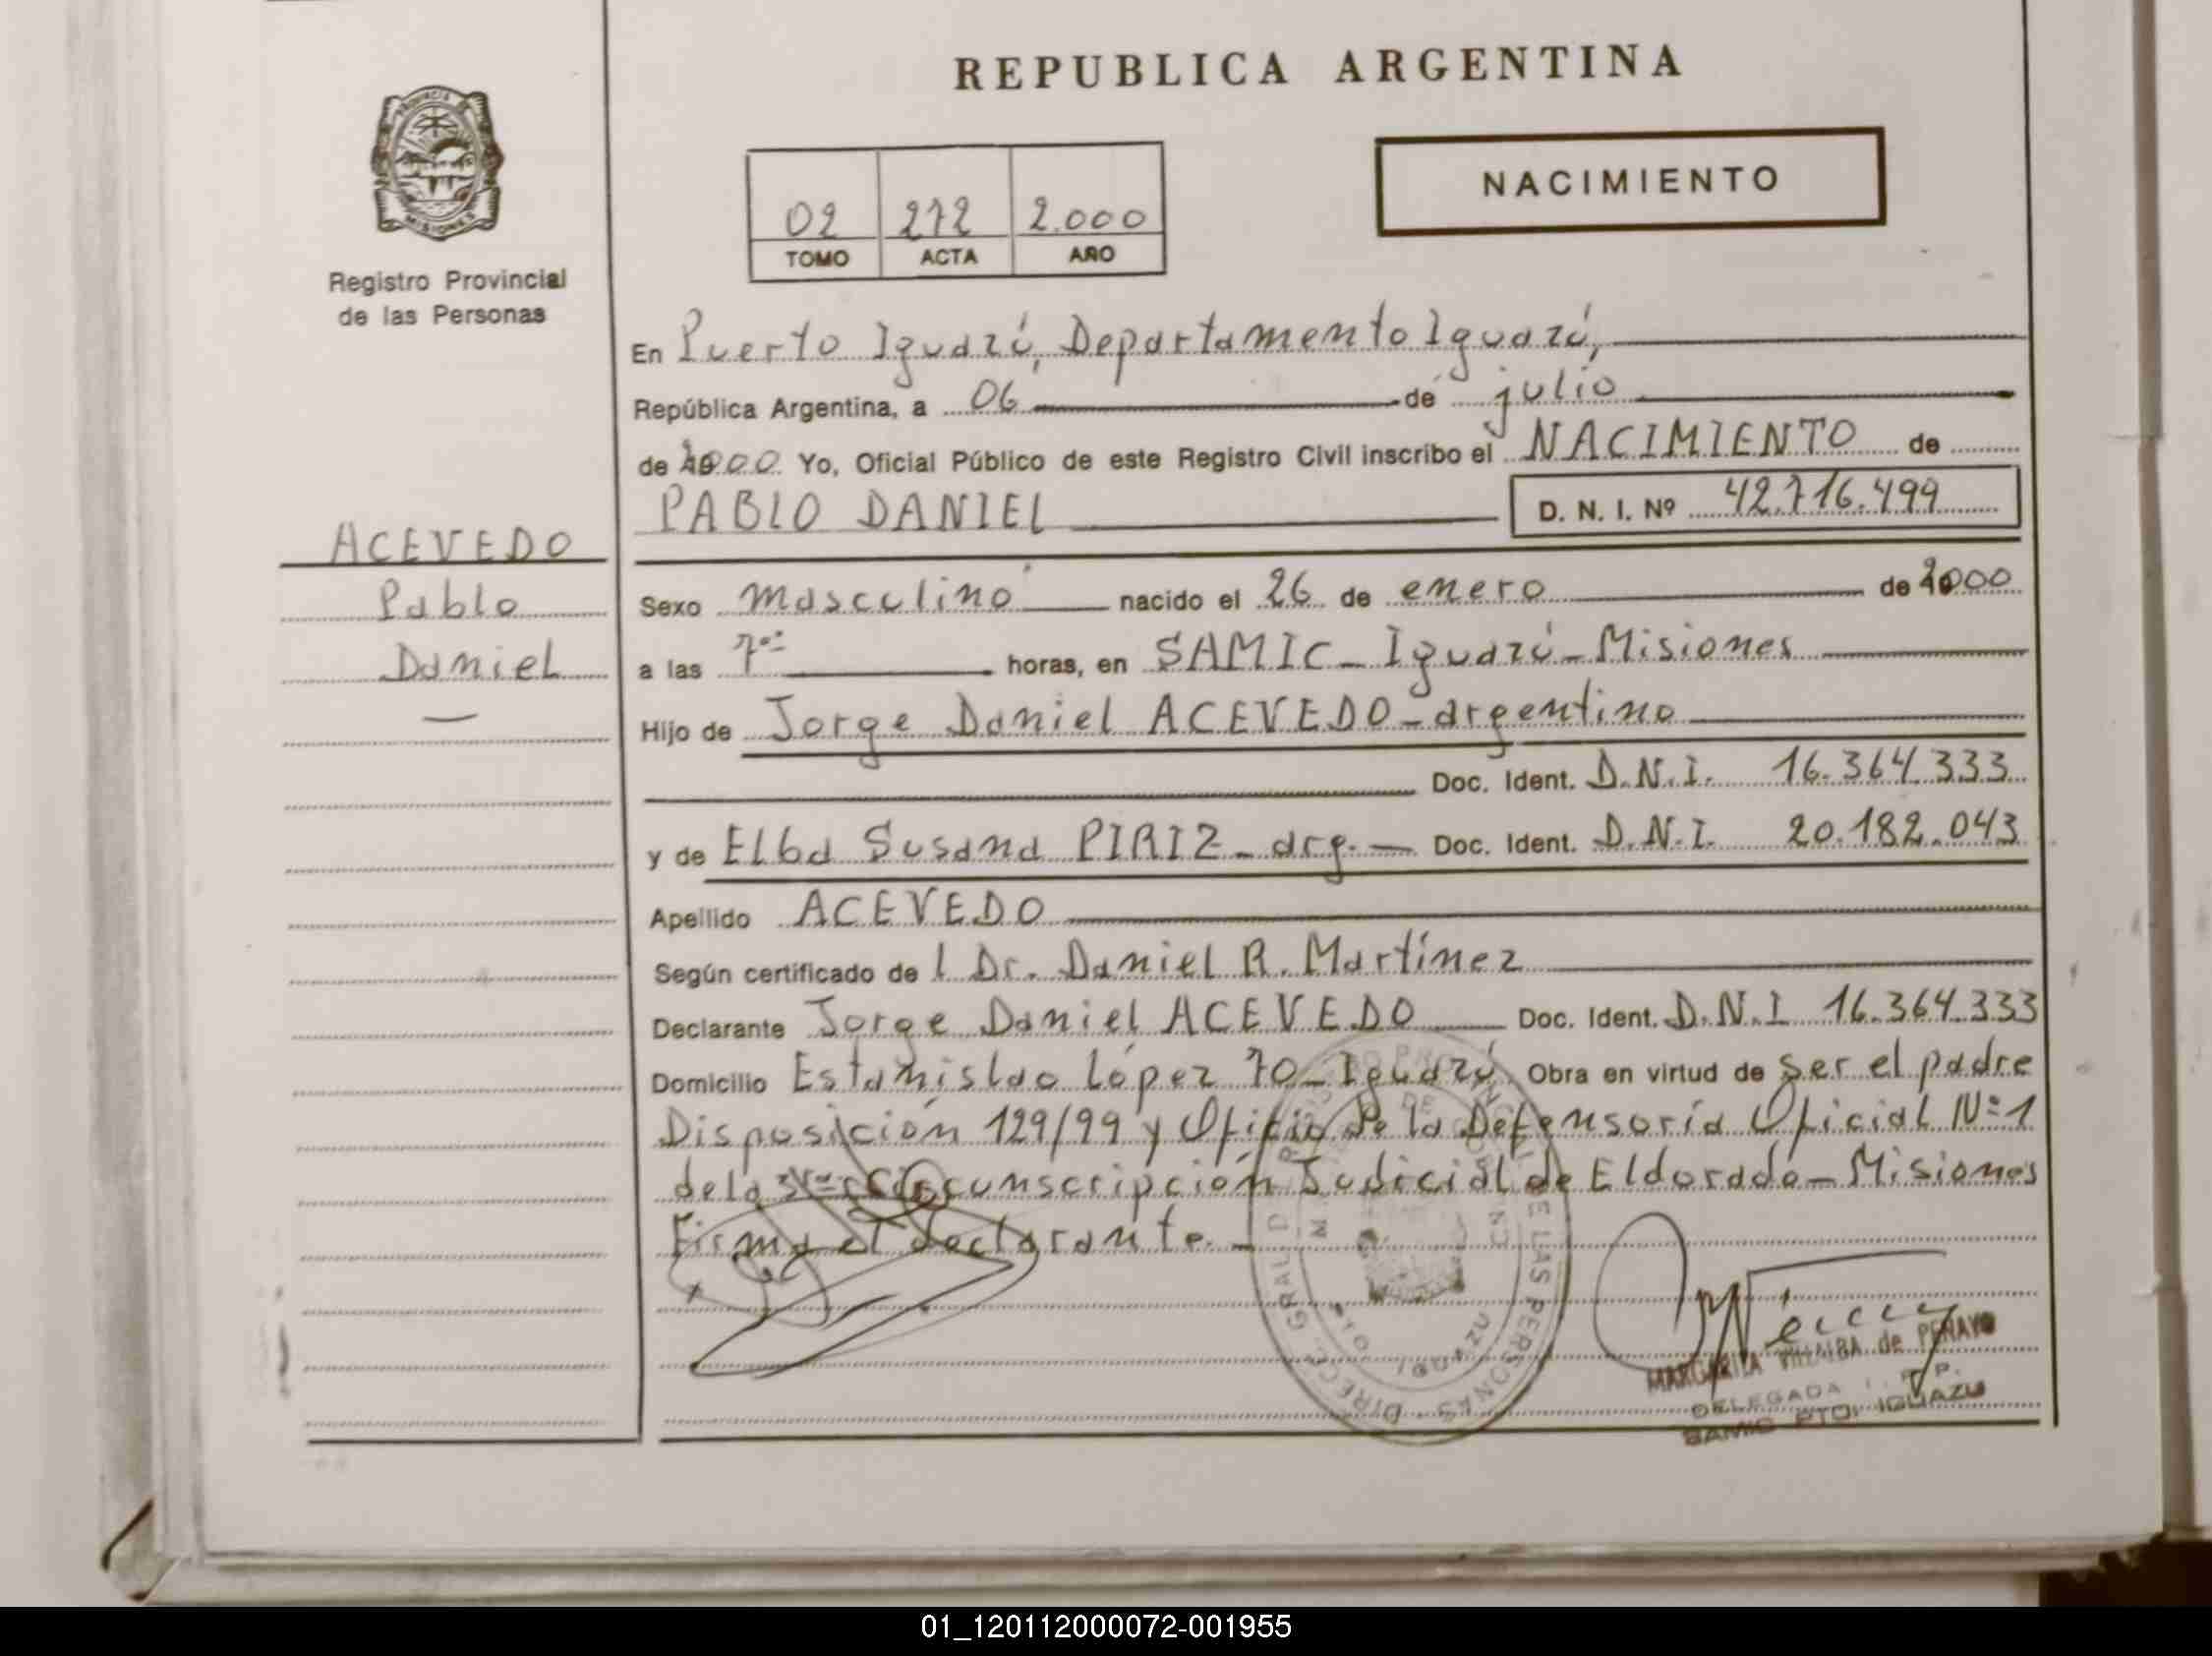 REPUBLICA ARGENTINA
PROVINCIA DE
MISIONES
Registro Provincial
de las Personas
NACIMIENTO
02 272 2.000
TOMO ACTA AÑO
En Puerto Iguazú, Departamento Iguazú,
República Argentina, a 06 de julio
de 2000 Yo, Oficial Público de este Registro Civil inscribo el NACIMIENTO de
PABLO DANIEL D. N. I. Nº 42.716.499
ACEVEDO
Pablo
Daniel
Sexo masculino nacido el 26 de enero de 2000
a las 7 horas, en SAMIC - Iguazú - Misiones
Hijo de Jorge Daniel ACEVEDO - argentino
Doc. Ident. D.N.I. 16.364.333
y de Elba Susana PIRIZ - arg. - Doc. Ident. D.N.I. 20.182.043
Apellido ACEVEDO
Según certificado de l Dr. Daniel R. Martínez
Declarante Jorge Daniel ACEVEDO Doc. Ident. D.N.I 16.364.333
Domicilio Estanislao López 70 - Iguazú Obra en virtud de ser el padre
Disposición 129/99 y Oficio de la Defensoría Oficial Nº 1
de la Circunscripción Judicial de Eldorado - Misiones
Firma el declarante. -
MARGARITA VILLALBA de PENAYO
DELEGADA
SAMIC PTO. IGUAZU
01_120112000072-001955